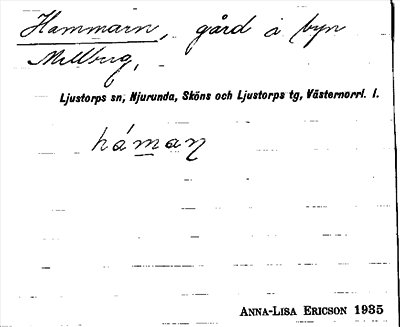 Hammarn, gård å byn
Mellberg,
Ljustorps sn, Njurunda, Sköns och Ljustorps tg, Västernorrl. l.
háman
ANNA-LISA ERICSON 1935